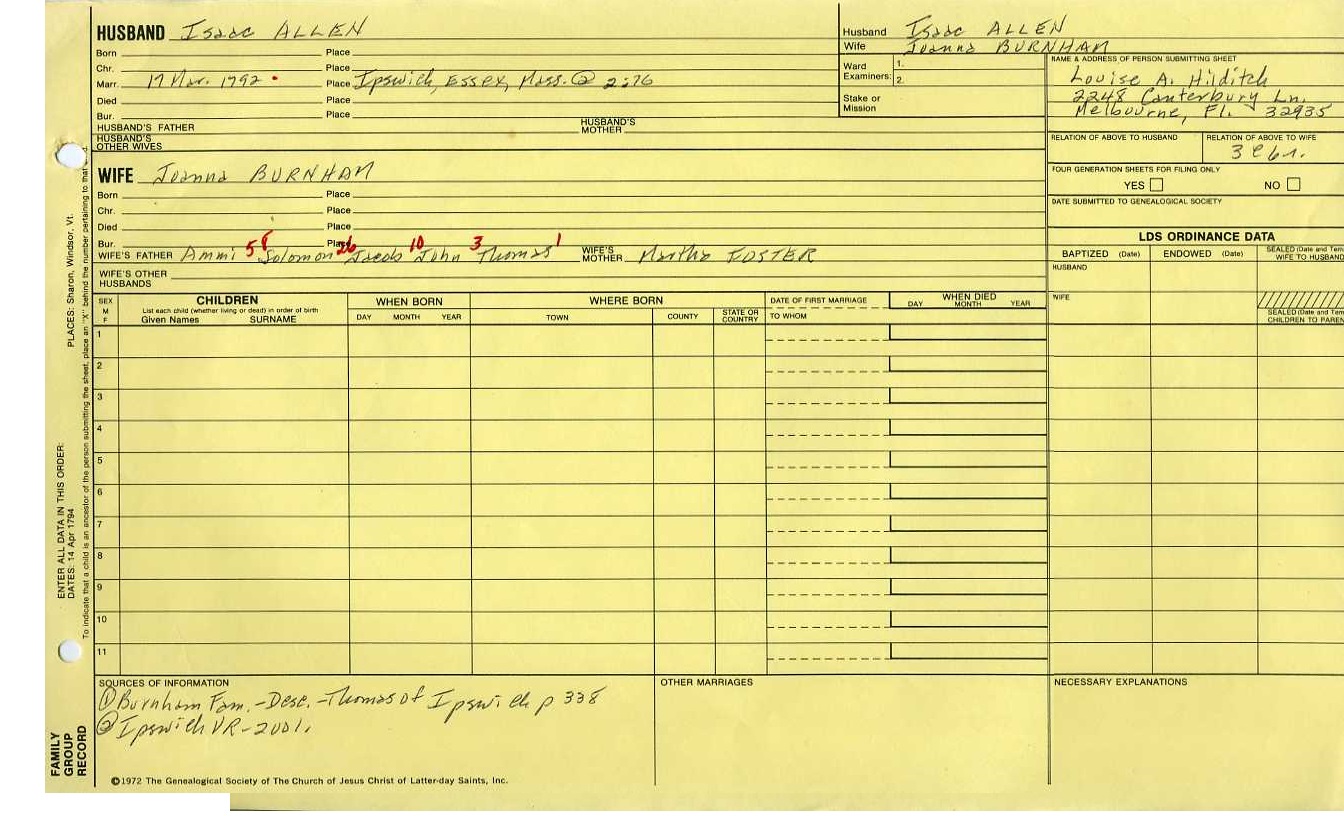 HUSBAND Isaac ALLEN
Born Place
Chr. Place
Marr. 17 Mar. 1792 Place Ipswich, Essex, Mass. ② 2:76
Died Place
Bur. Place
HUSBAND'S FATHER HUSBAND'S MOTHER
HUSBAND'S OTHER WIVES
WIFE Joanna BURNHAM
Born Place
Chr. Place
Died Place
Bur. Place
WIFE'S FATHER Ammi 58 Solomon 26 Jacob 10 John 3 Thomas 1 WIFE'S MOTHER Martha FOSTER
WIFE'S OTHER HUSBANDS
Husband Isaac ALLEN
Wife Joanna BURNHAM
Ward Examiners: 1.
2.
Stake or Mission
NAME & ADDRESS OF PERSON SUBMITTING SHEET
Louise A. Hilditch
2248 Canterbury Ln.
Melbourne, Fl. 32935
RELATION OF ABOVE TO HUSBAND RELATION OF ABOVE TO WIFE
FOUR GENERATION SHEETS FOR FILING ONLY
YES NO
DATE SUBMITTED TO GENEALOGICAL SOCIETY
LDS ORDINANCE DATA
BAPTIZED (Date) ENDOWED (Date) SEALED (Date and Tem
WIFE TO HUSBAND
HUSBAND
WIFE
SEALED (Date and Tem
CHILDREN TO PAREN
SEX M F
CHILDREN
List each child (whether living or dead) in order of birth
Given Names SURNAME
WHEN BORN
DAY MONTH YEAR
WHERE BORN
TOWN COUNTY STATE OR COUNTRY
DATE OF FIRST MARRIAGE
TO WHOM
WHEN DIED
DAY MONTH YEAR
1
2
3
4
5
6
7
8
9
10
11
SOURCES OF INFORMATION
① Burnham Fam. - Desc. - Thomas of Ipswich p 338
② Ipswich VR - 2 vol.
OTHER MARRIAGES
NECESSARY EXPLANATIONS
©1972 The Genealogical Society of The Church of Jesus Christ of Latter-day Saints, Inc.
FAMILY GROUP RECORD
ENTER ALL DATA IN THIS ORDER:
DATES: 14 Apr 1794
PLACES: Sharon, Windsor, Vt.
To indicate that a child is an ancestor of the person submitting the sheet, place an "X" behind the number pertaining to that